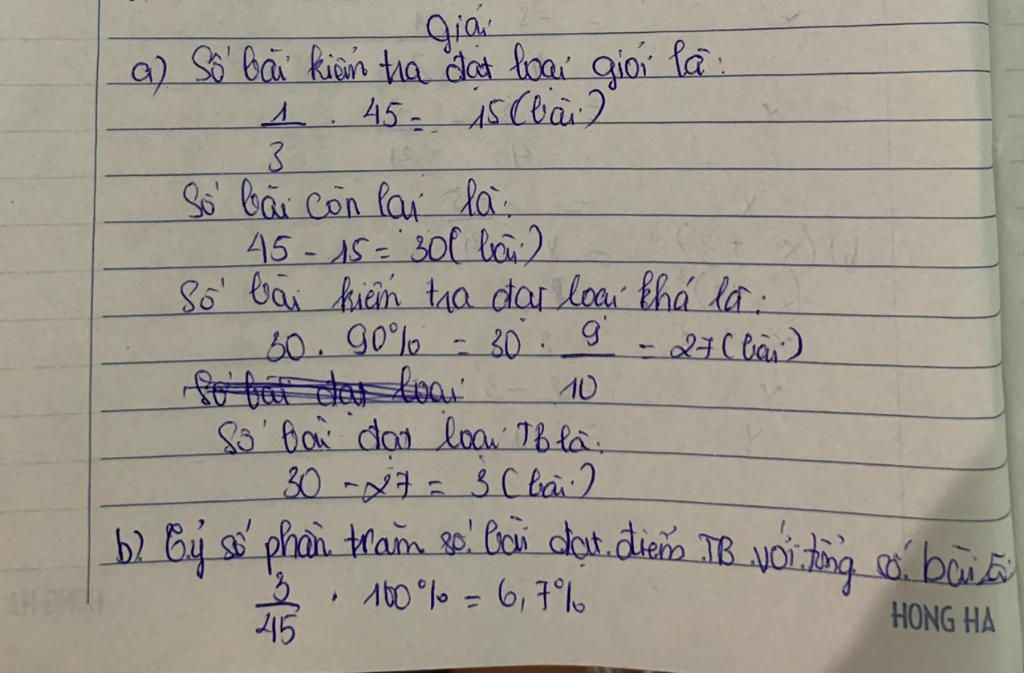 Giải
a) Số bài kiểm tra đạt loại giỏi là:
1/3 . 45 = 15 (bài)
Số bài còn lại là:
45 - 15 = 30 (bài)
Số bài kiểm tra đạt loại khá là:
30 . 90% = 30 . 9/10 = 27 (bài)
Số bài đạt loại
Số bài đạt loại TB là:
30 - 27 = 3 (bài)
b) Tỷ số phần trăm số bài đạt điểm TB với tổng số bài là
3/45 . 100% = 6,7%
HONG HA